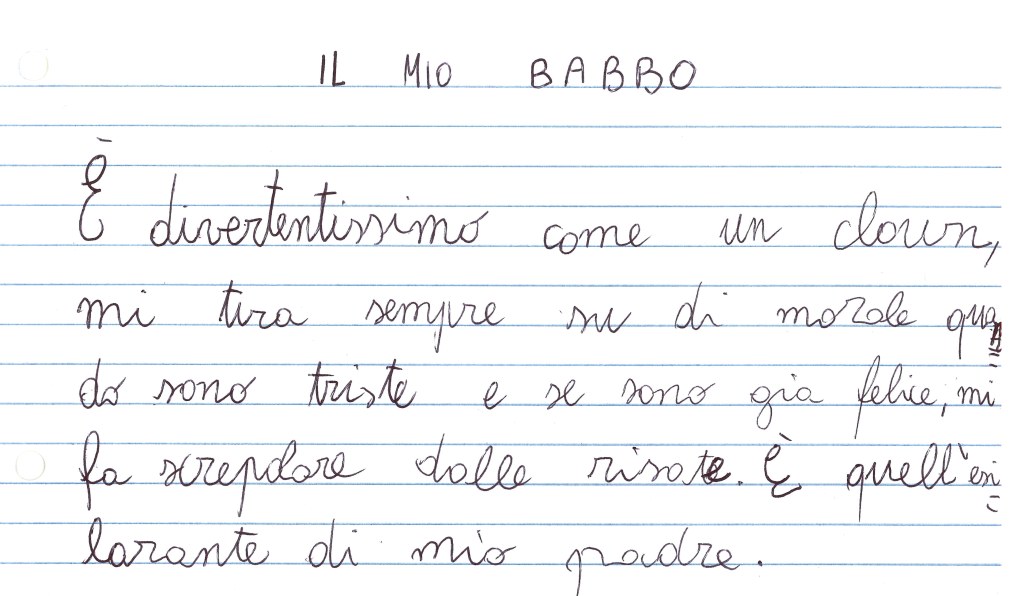 IL MIO BABBO
È divertentissimo come un clown,
mi tira sempre su di morale quan=
do sono triste e se sono già felice, mi
fa screpolare dalle risate. È quell'esi=
larante di mio padre.